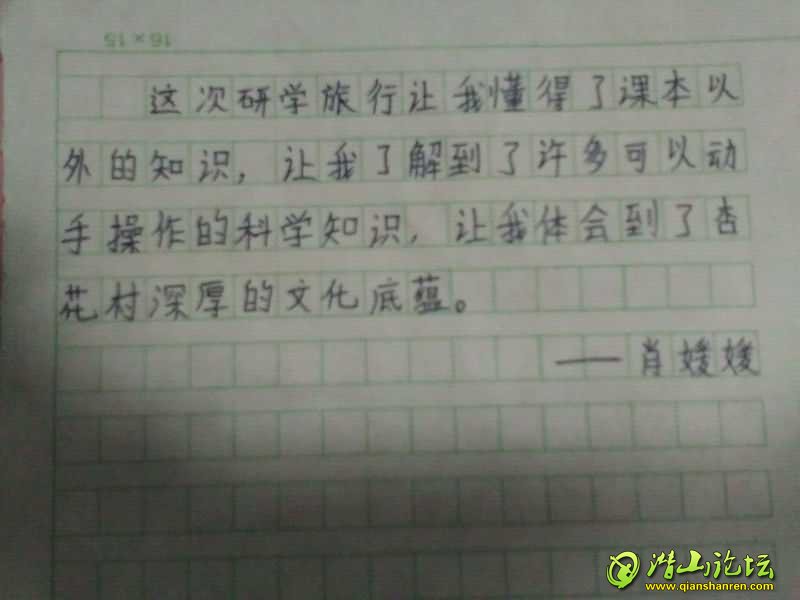 16×15
这次研学旅行让我懂得了课本以
外的知识，让我了解到了许多可以动
手操作的科学知识，让我体会到了杏
花村深厚的文化底蕴。
——肖媛媛
潜山论坛
www.qianshanren.com